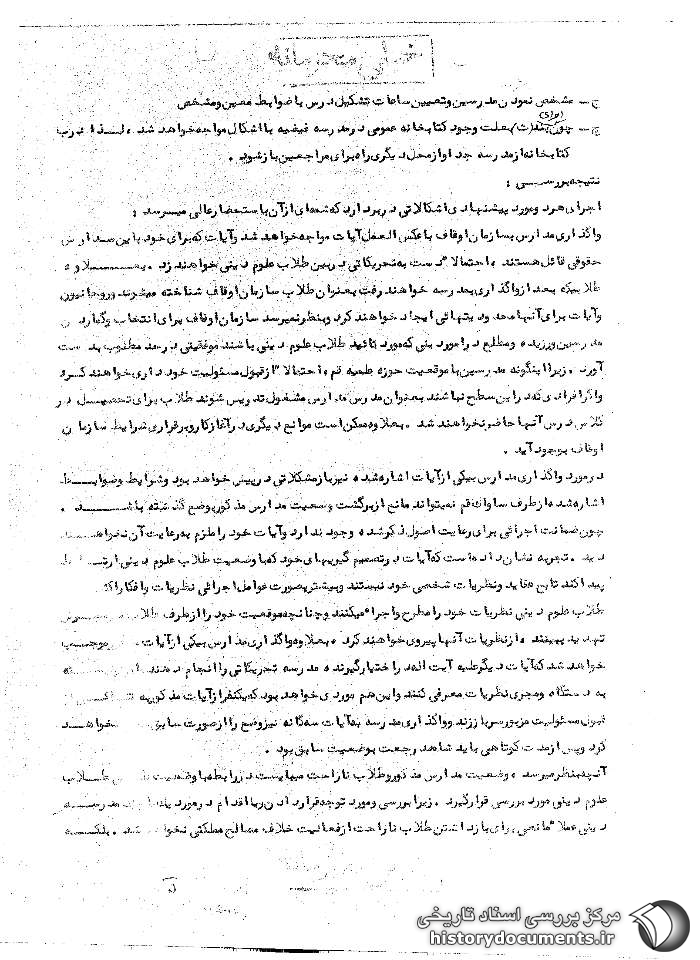 خیلی محرمانه
ج ـ مشخص نمودن مدرسین و تعیین ساعات تشکیل درس با ضوابط معین و مشخص
چ ـ چون اجرای بند (ت) بعلت وجود کتابخانه عمومی در مدرسه فیضیه با اشکال مواجه خواهد شد . لذا درب
کتابخانه از مدرسه جدا و از محل دیگری راه برای مراجعین باز شود .
نتیجه بررسی :
اجرای هر دو مورد پیشنهادی اشکالاتی در بر دارد که شمه‌ای از آن باستحضار عالی میرسد :
واگذاری مدارس بسازمان اوقاف با عکس العمل آیات مواجه خواهد شد و آیات که برای خود با این مدارس
حقوقی قائل هستند . احتمالا" دست به تحریکاتی در بین طلاب علوم دینی خواهند زد . بعلاوه
طلابیکه بعد از واگذاری بمدرسه خواهند رفت بعنوان طلاب سازمان اوقاف شناخته میشوند و روحانیون
و آیات برای آنها محدودیتهائی ایجاد خواهند کرد و بنظر نمیرسد سازمان اوقاف برای انتخاب و گماردن
مدرسین ورزیده و مطلع در امور دینی که مورد تائید طلاب علوم دینی باشند موفقیتی در حد مطلوب بدست
آورد . زیرا اینگونه مدرسین با موقعیت حوزه علمیه قم ، احتمالا" از قبول مسئولیت خودداری خواهند کرد
و اگر افرادی که در این سطح نباشند بعنوان مدرس مدارس مشغول تدریس شوند طلاب برای تحصیل در
کلاس درس آنها حاضر نخواهند شد . بعلاوه ممکن است موانع دیگری در آغاز کار و برقراری شرایط سازمان
اوقاف بوجود آید .
در مورد واگذاری مدارس بیکی از آیات اشاره شده نیز باز مشکلاتی در پیش خواهد بود و شرایط و ضوابط
اشاره شده از طرف ساواک قم نمیتواند مانع از برگشت وضعیت مدارس مذکور بوضع گذشته باشد .
چون ضمانت اجرائی برای رعایت اصول ذکر شده وجود ندارد و آیات خود را ملزم به رعایت آن نخواهند
دید . تجربه نشان داده است که آیات در تصمیم گیریهای خود که با وضعیت طلاب علوم دینی ارتباط
پیدا کند تابع عقاید و نظریات شخصی خود نیستند و بیشتر بصورت عوامل اجرائی نظریات و افکار اکثر
طلاب علوم دینی نظریات خود را مطرح و اجراء میکنند و چنانچه موقعیت خود را از طرف طلاب
تهدید ببینند ، از نظریات آنها پیروی خواهند کرد . بعلاوه واگذاری مدارس بیکی از آیات موجب
خواهد شد که آیات دیگر علیه آیت اله مدرسه را در اختیار گیرنده تحریکاتی را انجام دهند
به دستگاه و مجری نظریات معرفی کنند و این هم موردی خواهد بود که یکنفر از آیات مذکور به
قبول مسئولیت مزبور مبادرت ورزند و واگذاری مدرسه به آیات سه گانه نیز وضع را از صورت سابق خواهد
کرد و پس از مدت کوتاهی باید شاهد رجعت بوضعیت سابق بود .
آنچه بنظر میرسد ، وضعیت مدارس مذکور و طلاب ناراحت میبایست در رابطه با وضعیت طلاب
علوم دینی مورد بررسی قرار گیرد . زیرا بررسی و مورد توجه قرار دادن و یا اقدام در مورد یک مدرسه
دینی عملا" مانعی برای باز داشتن طلاب ناراحت از فعالیت خلاف مصالح مملکتی نخواهد شد . بلکه
مرکز بررسی اسناد تاریخی
historydocuments.ir